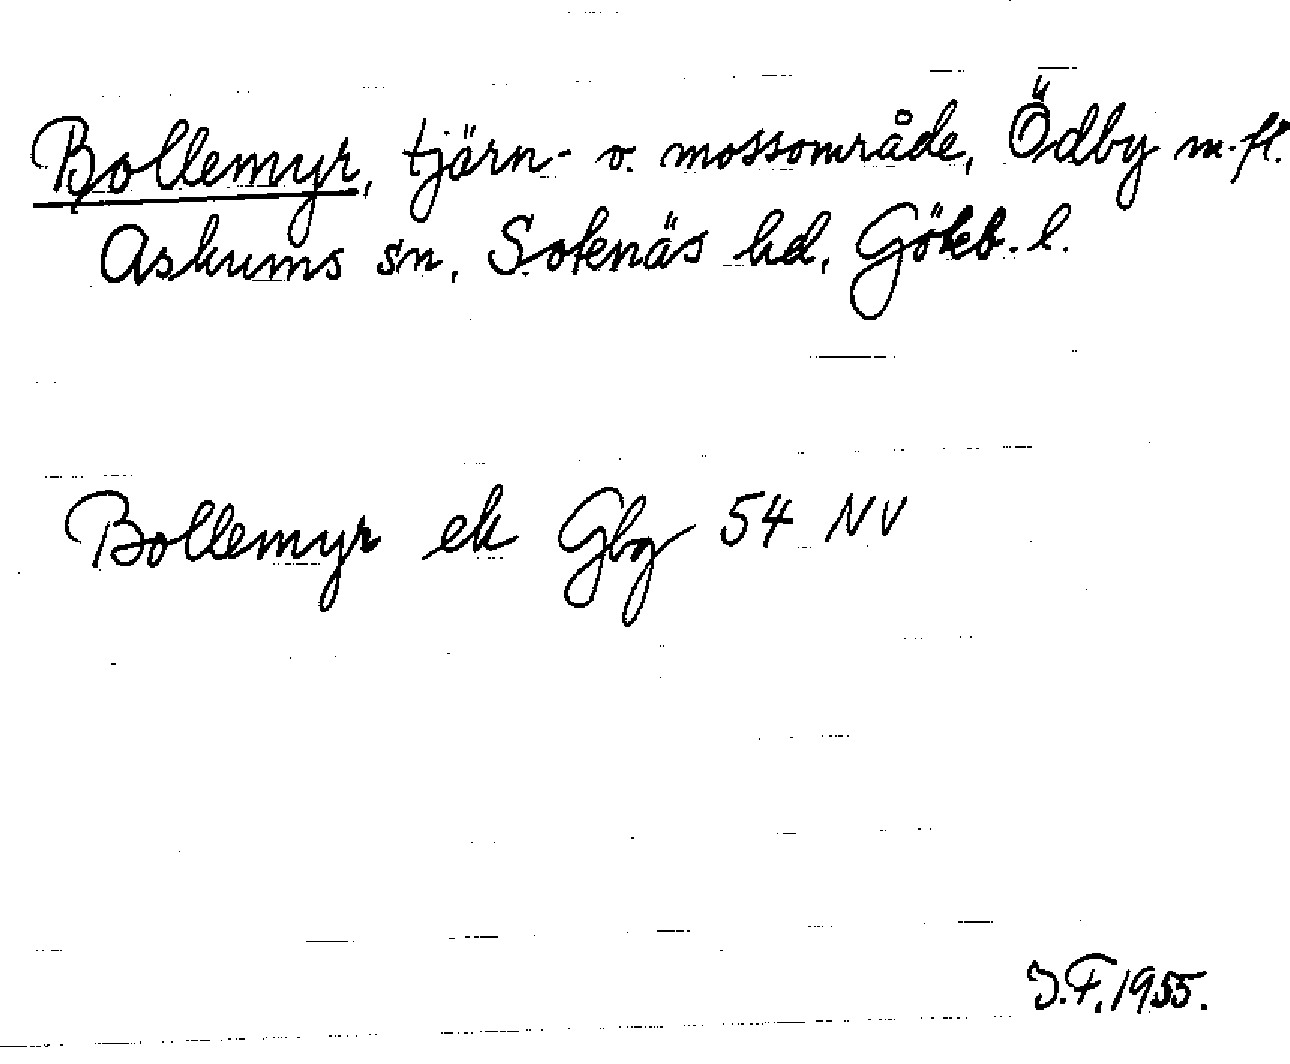 Bollemyr, tjärn- o. mossområde, Ödby m.fl.
Askums sn, Sotenäs hd, Göteb. l.
Bollemyr ek Gbg 54 NV
J.F. 1955.